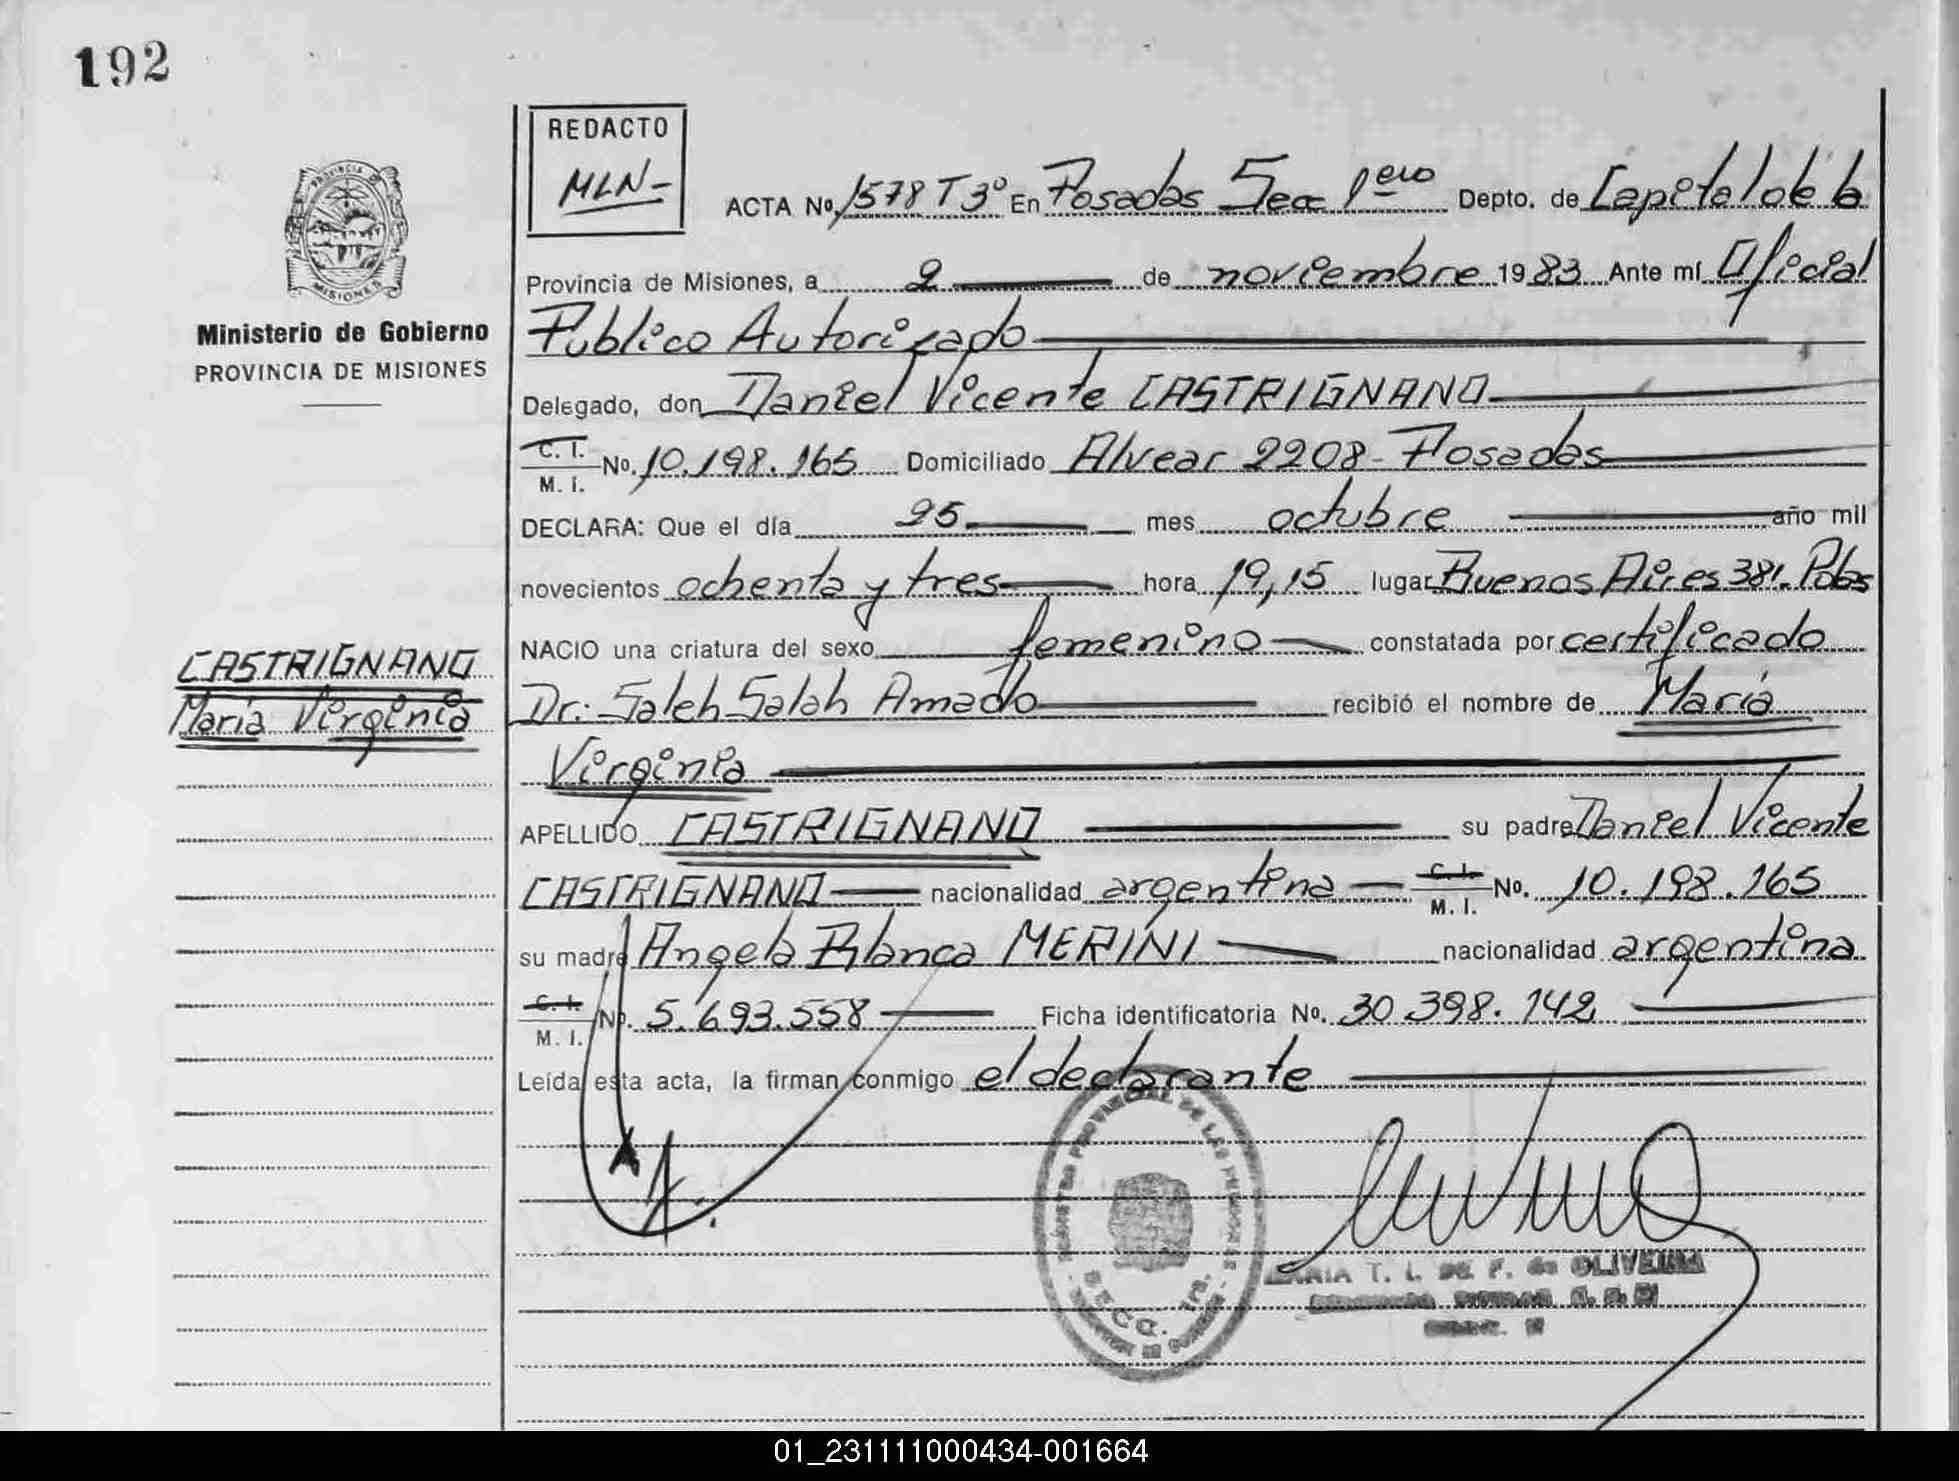 192
REDACTO
MLN-
ACTA No. 1578 T 3º En Posadas Secc 1era Depto. de Capital de la
Provincia de Misiones, a 2 de noviembre 1983 Ante mí Oficial
Público Autorizado
Delegado, don Daniel Vicente CASTRIGNANO
C. I.
M. I. No. 10.198.165 Domiciliado Alvear 2208 - Posadas
DECLARA: Que el día 25 mes octubre año mil
novecientos ochenta y tres hora 19,15 lugar Buenos Aires 381. Pdas
NACIO una criatura del sexo femenino constatada por certificado
Dr: Saleh Salah Amado recibió el nombre de María
Virginia
APELLIDO CASTRIGNANO su padre Daniel Vicente
CASTRIGNANO nacionalidad argentina C. I.
M. I. No. 10.198.165
su madre Angela Blanca MERINI nacionalidad argentina
C. I.
M. I. No. 5.693.558 Ficha identificatoria No. 30.398.142
Leída esta acta, la firman conmigo el declarante
PROVINCIA DE
MISIONES
Ministerio de Gobierno
PROVINCIA DE MISIONES
CASTRIGNANO
María Virginia
REGISTRO PROVINCIAL DE LAS PERSONAS
SECC. 1ra.
MARIA T. I. DE F. de OLIVEIRA
01_231111000434-001664